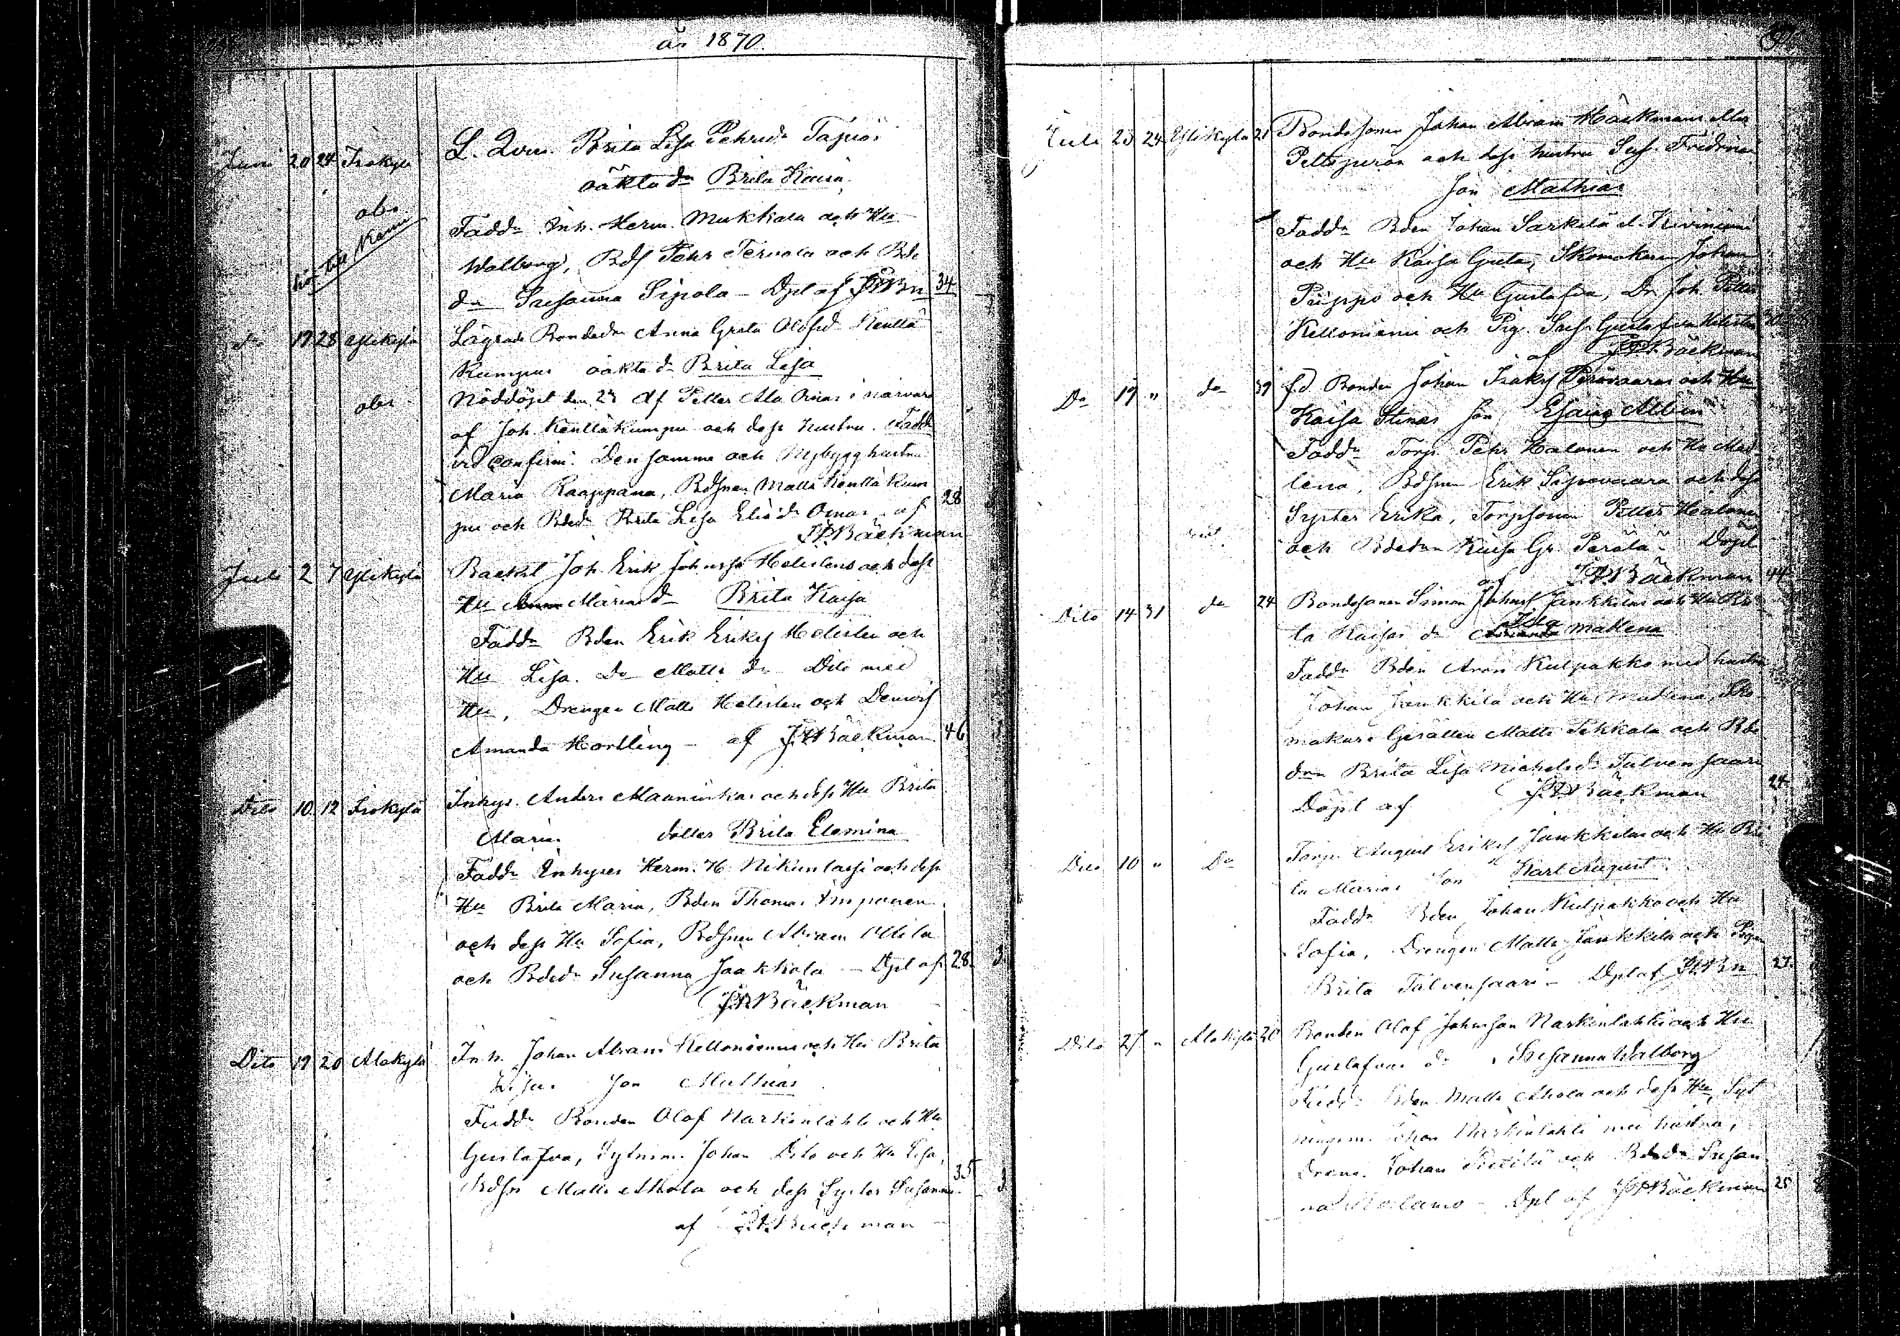 år 1870.
Juni 20 24 Isokylä L. Qvin. Brita Lisa Pehrsd. Tapios
oäkta dr Brita Kaisa
obs
hör till Kemi
Fadd. Inh. Herm. Mukkala och Hu
Walborg, Bds Pehr Tervola och Bde
dr Susanna Sipola – Dpl af 34
do 17 28 Ylikylä Lägrade Bondedr Anna Greta Olofsd. Kenttä
Kumpus oäkta dr Brita Lisa
obs Nöddöpt den 23 af Petter Ala Onas i närvaro
af Joh. Kenttäkumpu och dess hustru. Fadd
vid Confirm. Den samma och Nybygg hustru
Maria Raappana, Bdsnen Matts Kenttä Kum
pu och Bded. Brita Lisa Eliæd. Onas. af 28
Bäckman
Juli 2 7 Ylikylä Backst Joh. Erik Johnss Helistens och dess
Hu Maria dr Brita Kaisa
Fadd Bden Erik Eriks Helisten och
Hu Lisa. Do Matts do Dito med
Hu, Drengen Matts Helisten och
Amanda Hortling – af Bäckman 46
Dito 10 12 Isokylä Inhys. Anders Maaninkas och dess Hu Brita
Marias dotter Brita Elemina
Fadd Inhyses Herm. H. Nikunlassi och dess
Hu Brita Maria, Bden Thomas Imponen
och dess Hu Sofia, Bdsnen Abram Ollila
och Bded. Susanna Jaakkola – Dpl af 28
Bäckman
Dito 19 20 Alakylä Inh. Johan Abrams Kelloniemis och Hu Brita
Lisas Son Mathias
Fadd Bonden Olof Narkinlahti och Hu
Gustafva, Sytnim. Johan Dito och Hu Lisa,
Bdsn Matts Ahola och dess Syster Susanna 35
af Bäckman
Juli 23 24 Ylikylä 21 Bondesonen Johan Abram Häckmans eller
och dess hustru Sus. Fredrikas
Son Mathias
Fadd Bden Johan Särkelä el. Kiviniemi
och Hu Kaisa Greta, Skomakaren Johan
Puippo och Hu Gustafva, Dr Joh. Petter
Kelloniemi och Pig. Sus. Gustafva Helisten
af Bäckman
Do 19 " do 39 fd. Bonden Johan Isaks och Hu
Kaisa Stinas Son Esaias Albin
Fadd Torp. Pehr Halonen och Hu Mad
lena, Bdsnen Erik Sipovaara och dess
Syster Erika, Torpsonen Petter Halonen
och Bdedtr Kaisa Gr. Perälä Döpt
af Bäckman 44
Dito 14 31 do 24 Bondesonen Simon Johnss Jankkilas och Hu Bri
ta Kaisas dr Mallena
Fadd Bden Aron Kulpakko med hustru
Johan Jankkila och Hu Mallena, Sko
makare Gesällen Matts Tikkala och Bde
dtr Brita Lisa Michelsd. Talvensaari
Döpt af Bäckman 24
Dito 10 " Do Torp. August Eriks Jankkilas och Hu Bri
ta Marias Son Karl August
Fadd Bden Johan Kulpakko och Hu
Sofia, Drengen Matts Jankkila och Pigan
Brita Talvensaari – Dpl af 27
Dito 27 " Alakylä 20 Bonden Olof Johnsson Narkinlahtis och Hu
Gustafvas dr Susanna Walborg
Fadd. Bden Matts Ahola och dess Hu, Syt
ningsm. Johan Narkinlahti med hustru,
Dreng. Johan Pietilä och Bdedr Susan
na – Dpl af Bäckman 25